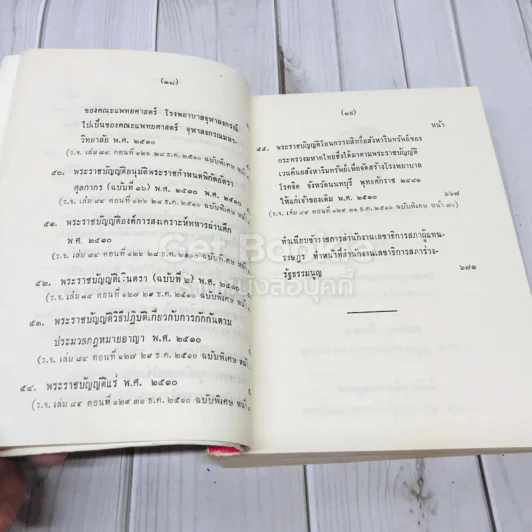 (๑๘)
ของคณะแพทยศาสตร์ โรงพยาบาลจุฬาลงกรณ์
ไปเป็นของคณะแพทยศาสตร์ จุฬาลงกรณมหา-
วิทยาลัย พ.ศ. ๒๕๑๐
(ร.จ. เล่ม ๘๔ ตอนที่ ๑๒๖ ๒๘ ธ.ค. ๒๕๑๐ ฉบับพิเศษ หน้า
๕๐. พระราชบัญญัติอนุมัติพระราชกำหนดพิกัดอัตรา
ศุลกากร (ฉบับที่ ๑๖) พ.ศ. ๒๕๑๐ พ.ศ. ๒๕๑๐
(ร.จ. เล่ม ๘๔ ตอนที่ ๑๒๖ ๒๘ ธ.ค. ๒๕๑๐ ฉบับพิเศษ หน้า
๕๑. พระราชบัญญัติองค์การสงเคราะห์ทหารผ่านศึก
พ.ศ. ๒๕๑๐
(ร.จ. เล่ม ๘๔ ตอนที่ ๑๒๗ ๒๙ ธ.ค. ๒๕๑๐ ฉบับพิเศษ
๕๒. พระราชบัญญัติเงินตรา (ฉบับที่ ๒) พ.ศ. ๒๕๑๐
(ร.จ. เล่ม ๘๔ ตอนที่ ๑๒๗ ๒๙ ธ.ค. ๒๕๑๐ ฉบับพิเศษ
๕๓. พระราชบัญญัติวิธีปฏิบัติเกี่ยวกับการกักกันตาม
ประมวลกฎหมายอาญา พ.ศ. ๒๕๑๐
(ร.จ. เล่ม ๘๔ ตอนที่ ๑๒๗ ๒๙ ธ.ค. ๒๕๑๐ ฉบับพิเศษ หน้า
๕๔. พระราชบัญญัติแร่ พ.ศ. ๒๕๑๐
(ร.จ. เล่ม ๘๔ ตอนที่ ๑๒๙ ๓๑ ธ.ค. ๒๕๑๐ ฉบับพิเศษ หน้า
(๑๙)
หน้า
๕๕. พระราชบัญญัติโอนกรรมสิทธิ์อสังหาริมทรัพย์ของ
กระทรวงมหาดไทยซึ่งได้มาตามพระราชบัญญัติ
เวนคืนอสังหาริมทรัพย์เพื่อจัดสร้างโรงพยาบาล
โรคจิต จังหวัดนนทบุรี พุทธศักราช ๒๔๘๑
ให้แก่เจ้าของเดิม พ.ศ. ๒๕๑๐ ๖๖๗
(ร.จ. เล่ม ๘๔ ตอนที่ ๑๒๙ ๓๑ ธ.ค. ๒๕๑๐ ฉบับพิเศษ หน้า ๘๐)
ทำเนียบข้าราชการสำนักงานเลขาธิการสภาผู้แทน-
ราษฎร ทำหน้าที่สำนักงานเลขาธิการสภาร่าง-
รัฐธรรมนูญ ๖๗๑
Get Bookie
ร้านหนังสือบุคกี้